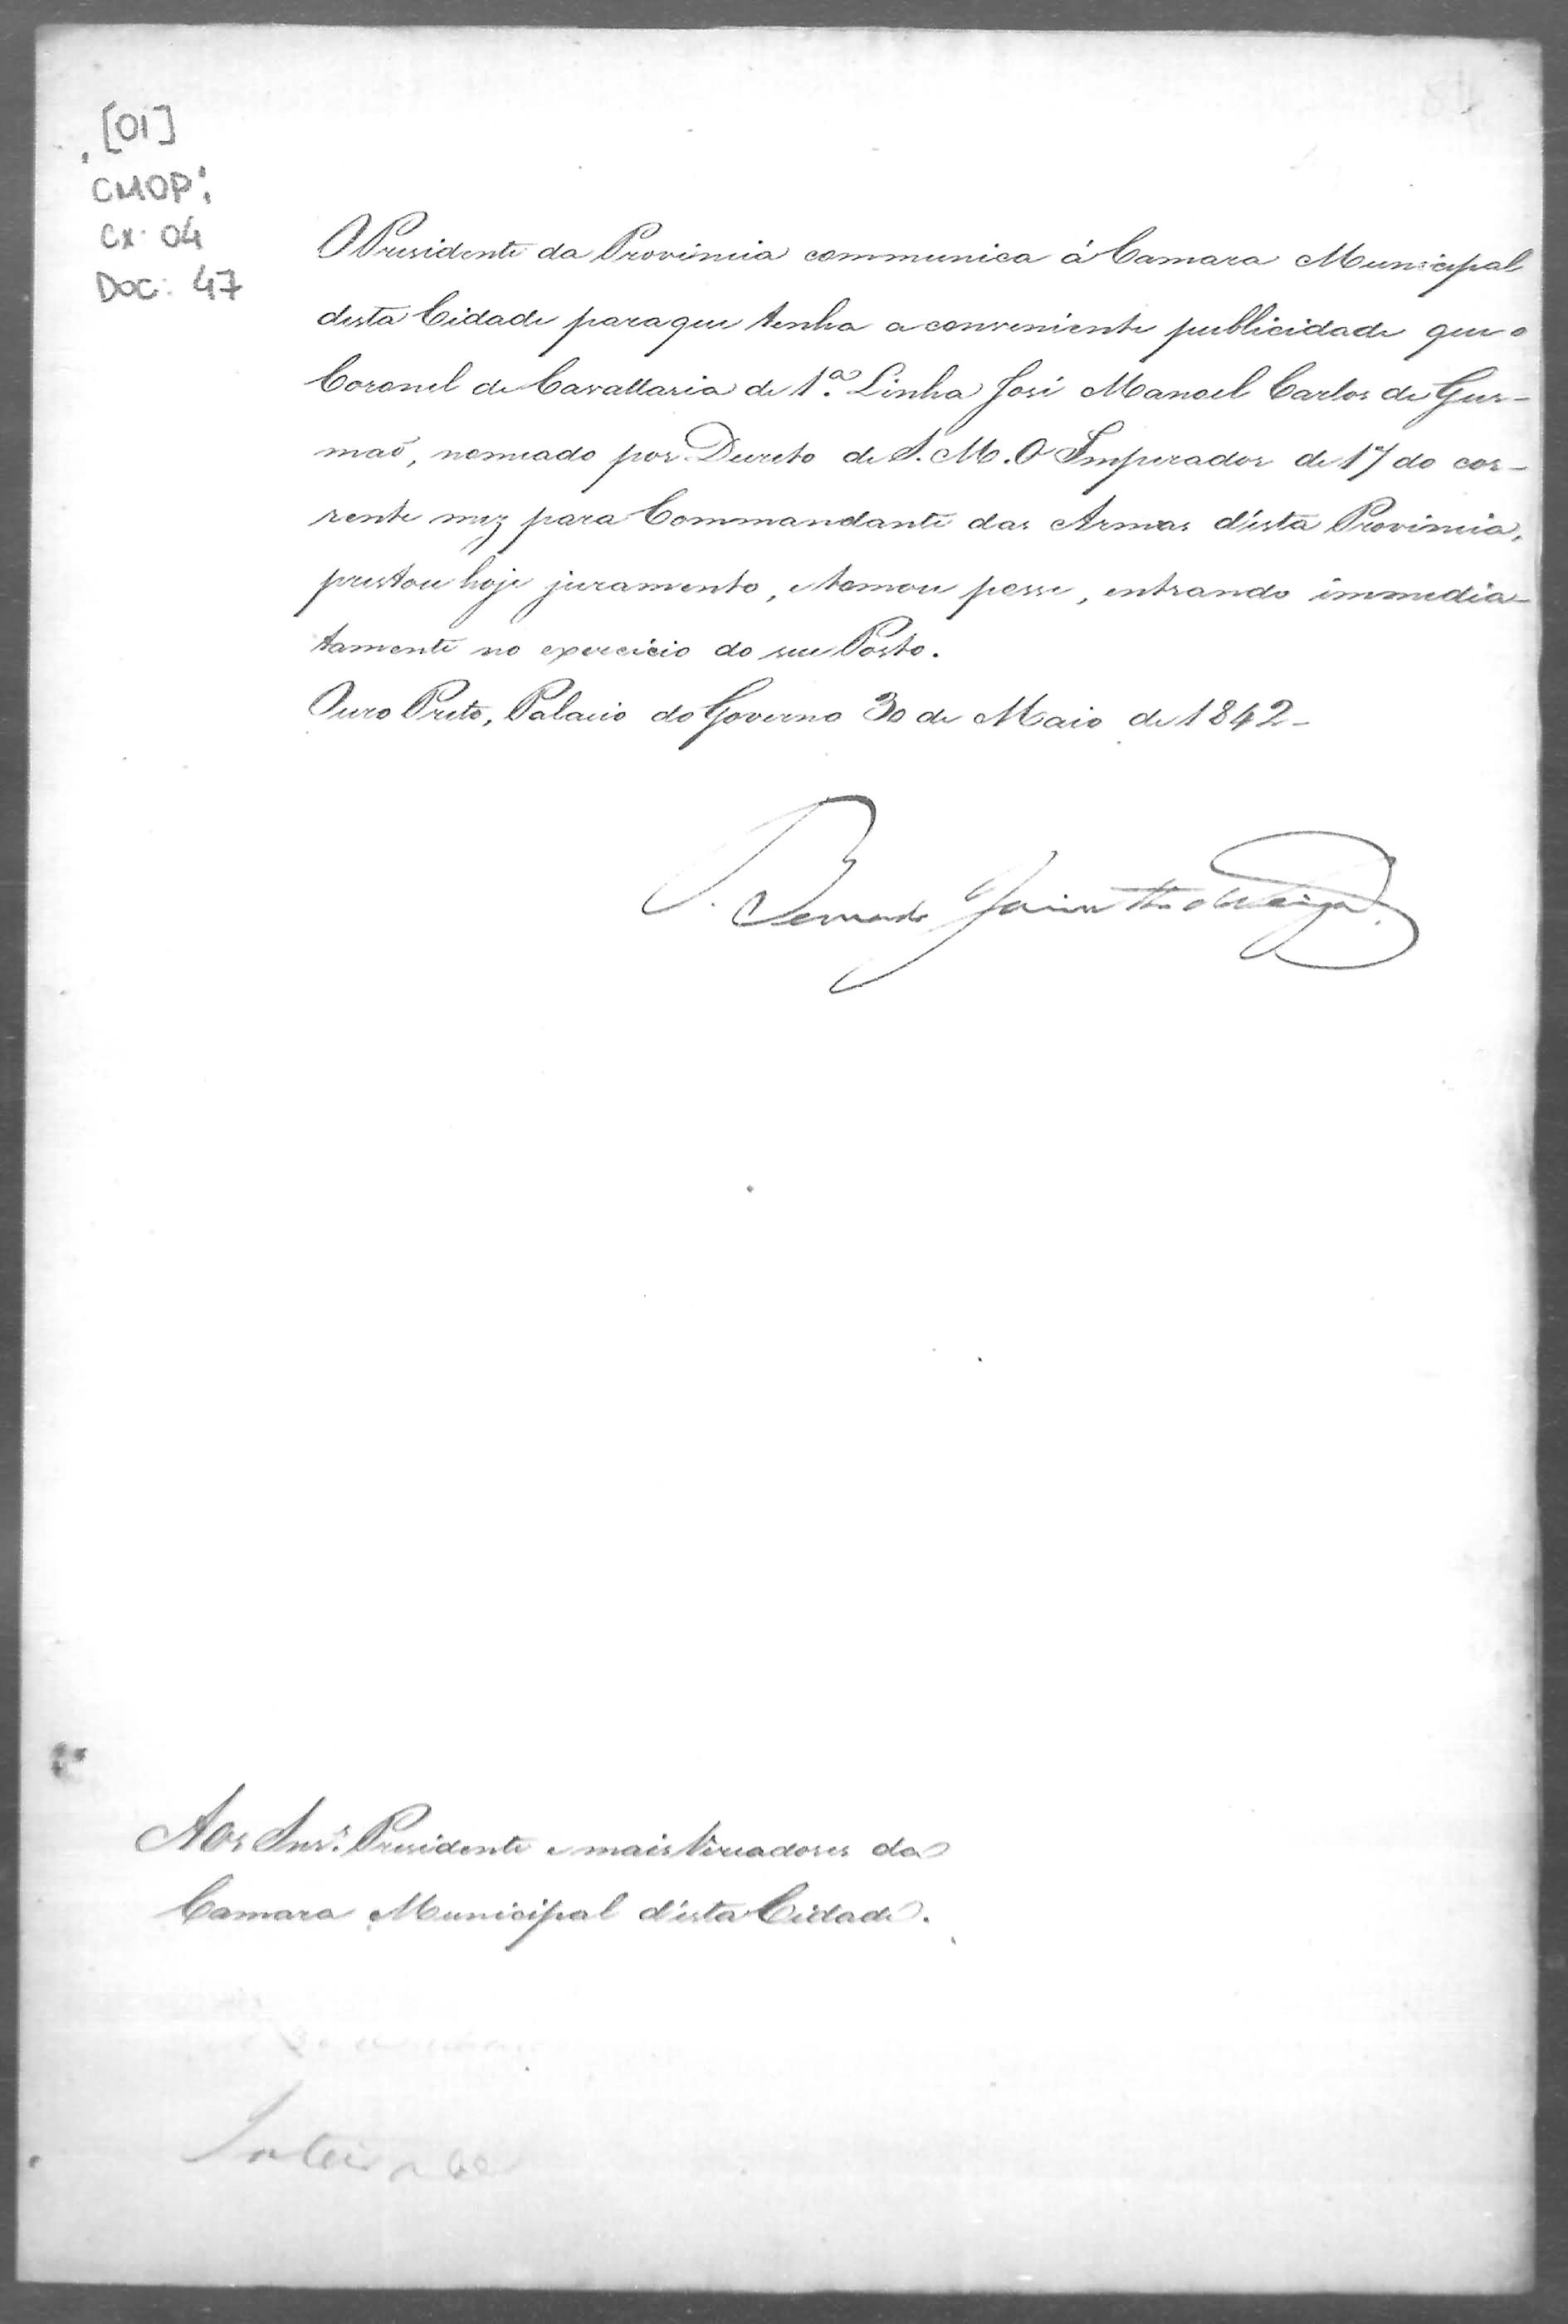 [01]
CMOP:
CX. 04
DOC: 47
O Presidente da Provincia communica á Camara Municipal
desta Cidade paraque tenha a conveniente publicidade que o
Coronel de Cavallaria de 1ª. Linha José Manoel Carlos de Gus-
maõ, nomeado por Decreto de S. M. O Imperador de 17 do cor-
rente mez para Commandante das Armas d'esta Provincia,
prestou hoje juramento, e tomou posse, entrando immedia-
tamente no exercicio do seu Posto.
Ouro Preto, Palacio do Governo 30 de Maio de 1842-
Bernardo Jacintho da Veiga.
Aos Snrs. Presidente e mais Vereadores da
Camara Municipal d'esta Cidade.
Inteirada